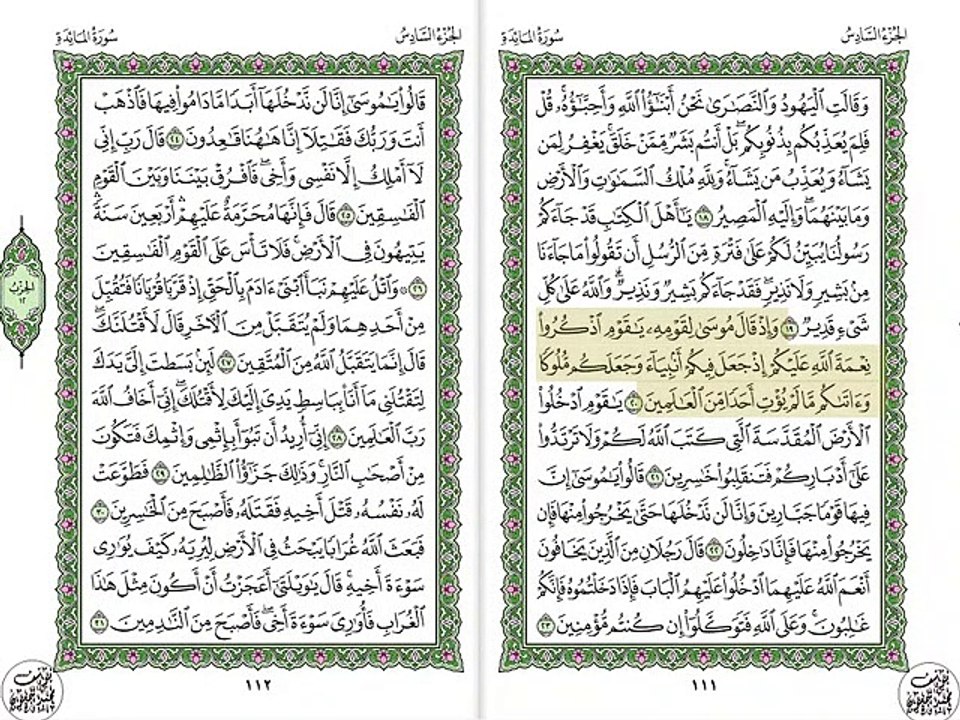 الجُزْءُ السَّادِسُ
سُورَةُ المَائِدَةِ
وَقَالَتِ الْيَهُودُ وَالنَّصَارَىٰ نَحْنُ أَبْنَاؤُا اللَّهِ وَأَحِبَّاؤُهُ ۚ قُلْ
فَلِمَ يُعَذِّبُكُم بِذُنُوبِكُم ۖ بَلْ أَنتُم بَشَرٌ مِّمَّنْ خَلَقَ ۚ يَغْفِرُ لِمَن
يَشَاءُ وَيُعَذِّبُ مَن يَشَاءُ ۚ وَلِلَّهِ مُلْكُ السَّمَاوَاتِ وَالْأَرْضِ
وَمَا بَيْنَهُمَا ۖ وَإِلَيْهِ الْمَصِيرُ ١٨ يَا أَهْلَ الْكِتَابِ قَدْ جَاءَكُمْ
رَسُولُنَا يُبَيِّنُ لَكُمْ عَلَىٰ فَتْرَةٍ مِّنَ الرُّسُلِ أَن تَقُولُوا مَا جَاءَنَا
مِن بَشِيرٍ وَلَا نَذِيرٍ ۖ فَقَدْ جَاءَكُم بَشِيرٌ وَنَذِيرٌ ۗ وَاللَّهُ عَلَىٰ كُلِّ
شَيْءٍ قَدِيرٌ ١٩ وَإِذْ قَالَ مُوسَىٰ لِقَوْمِهِ يَا قَوْمِ اذْكُرُوا
نِعْمَةَ اللَّهِ عَلَيْكُمْ إِذْ جَعَلَ فِيكُمْ أَنبِيَاءَ وَجَعَلَكُم مُّلُوكًا
وَءَاتَاكُم مَّا لَمْ يُؤْتِ أَحَدًا مِّنَ الْعَالَمِينَ ٢٠ يَا قَوْمِ ادْخُلُوا
الْأَرْضَ الْمُقَدَّسَةَ الَّتِي كَتَبَ اللَّهُ لَكُمْ وَلَا تَرْتَدُّوا
عَلَىٰ أَدْبَارِكُمْ فَتَنقَلِبُوا خَاسِرِينَ ٢١ قَالُوا يَا مُوسَىٰ إِنَّ
فِيهَا قَوْمًا جَبَّارِينَ وَإِنَّا لَن نَّدْخُلَهَا حَتَّىٰ يَخْرُجُوا مِنْهَا فَإِن
يَخْرُجُوا مِنْهَا فَإِنَّا دَاخِلُونَ ٢٢ قَالَ رَجُلَانِ مِنَ الَّذِينَ يَخَافُونَ
أَنْعَمَ اللَّهُ عَلَيْهِمَا ادْخُلُوا عَلَيْهِمُ الْبَابَ فَإِذَا دَخَلْتُمُوهُ فَإِنَّكُمْ
غَالِبُونَ ۚ وَعَلَى اللَّهِ فَتَوَكَّلُوا إِن كُنتُم مُّؤْمِنِينَ ٢٣
١١١
الجُزْءُ السَّادِسُ
سُورَةُ المَائِدَةِ
قَالُوا يَا مُوسَىٰ إِنَّا لَن نَّدْخُلَهَا أَبَدًا مَّا دَامُوا فِيهَا فَاذْهَبْ
أَنتَ وَرَبُّكَ فَقَاتِلَا إِنَّا هَاهُنَا قَاعِدُونَ ٢٤ قَالَ رَبِّ إِنِّي
لَا أَمْلِكُ إِلَّا نَفْسِي وَأَخِي ۖ فَافْرُقْ بَيْنَنَا وَبَيْنَ الْقَوْمِ
الْفَاسِقِينَ ٢٥ قَالَ فَإِنَّهَا مُحَرَّمَةٌ عَلَيْهِمْ ۛ أَرْبَعِينَ سَنَةً ۛ
يَتِيهُونَ فِي الْأَرْضِ ۚ فَلَا تَأْسَ عَلَى الْقَوْمِ الْفَاسِقِينَ
٢٦ وَاتْلُ عَلَيْهِمْ نَبَأَ ابْنَيْ ءَادَمَ بِالْحَقِّ إِذْ قَرَّبَا قُرْبَانًا فَتُقُبِّلَ
مِنْ أَحَدِهِمَا وَلَمْ يُتَقَبَّلْ مِنَ الْآخَرِ قَالَ لَأَقْتُلَنَّكَ ۖ
قَالَ إِنَّمَا يَتَقَبَّلُ اللَّهُ مِنَ الْمُتَّقِينَ ٢٧ لَئِن بَسَطتَ إِلَيَّ يَدَكَ
لِتَقْتُلَنِي مَا أَنَا بِبَاسِطٍ يَدِيَ إِلَيْكَ لِأَقْتُلَكَ ۖ إِنِّي أَخَافُ اللَّهَ
رَبَّ الْعَالَمِينَ ٢٨ إِنِّي أُرِيدُ أَن تَبُوءَ بِإِثْمِي وَإِثْمِكَ فَتَكُونَ
مِنْ أَصْحَابِ النَّارِ ۚ وَذَٰلِكَ جَزَاؤُا الظَّالِمِينَ ٢٩ فَطَوَّعَتْ
لَهُ نَفْسُهُ قَتْلَ أَخِيهِ فَقَتَلَهُ فَأَصْبَحَ مِنَ الْخَاسِرِينَ ٣٠
فَبَعَثَ اللَّهُ غُرَابًا يَبْحَثُ فِي الْأَرْضِ لِيُرِيَهُ كَيْفَ يُوَارِي
سَوْءَةَ أَخِيهِ ۚ قَالَ يَا وَيْلَتَىٰ أَعَجَزْتُ أَنْ أَكُونَ مِثْلَ هَٰذَا
الْغُرَابِ فَأُوَارِيَ سَوْءَةَ أَخِي ۖ فَأَصْبَحَ مِنَ النَّادِمِينَ ٣١
١١٢
الحِزْبُ
١٢